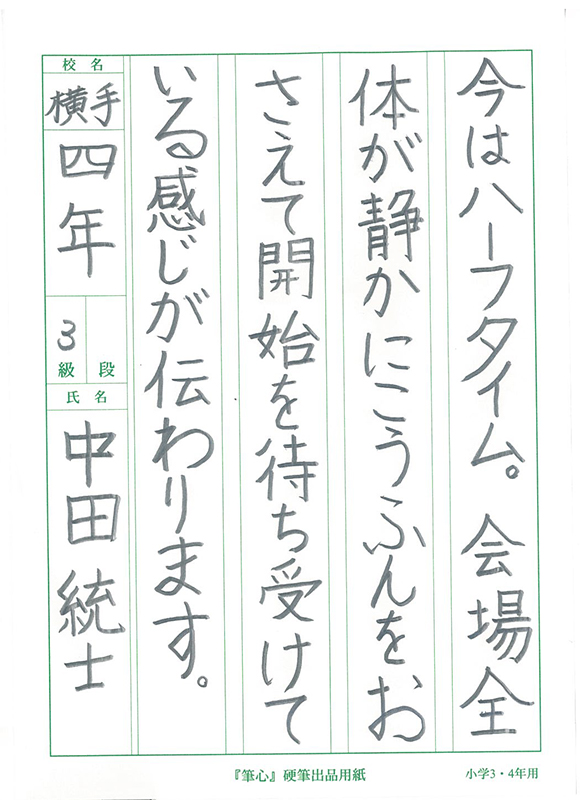 今はハーフタイム。会場全
体が静かにこうふんをお
さえて開始を待ち受けて
いる感じが伝わります。
校名
横手
四年
3
級 段
氏名
中田統士
『筆心』硬筆出品用紙
小学3・4年用